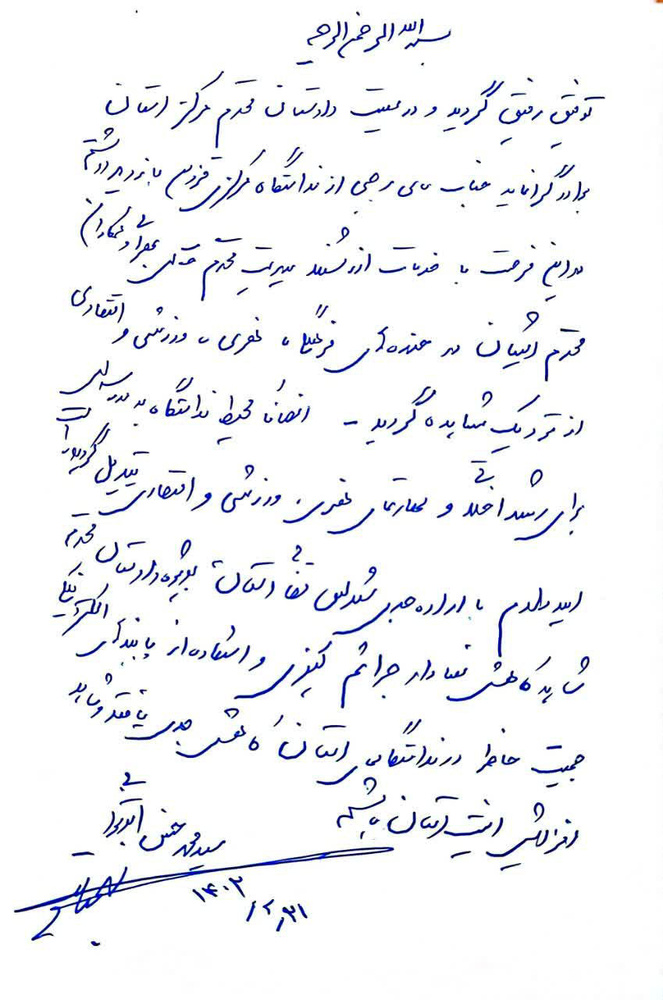 بسم الله الرحمن الرحیم
توفیق رفیق گردید و در معیت دادستان محترم مرکز استان
برادر گرانمایه جناب آقای رجبی از ندامتگاه مرکزی قزوین بازدید داشتم
در این فرصت با خدمات ارزشمند مدیریت محترم و همکاران
محترم ایشان در حوزه‌های فرهنگی، هنری، ورزشی و اقتصادی
از نزدیک مشاهده گردید - انصافاً محیط ندامتگاه به مدرسه‌ای
برای رشد اخلاقی و مهارتهای هنری، ورزشی و اقتصادی تبدیل گردیده است
امیدوارم با اراده جدی مسئولین قضائی استان بویژه دادستان محترم
شاهد کاهش معنادار جرائم کیفری و استفاده از پابندهای الکترونیکی
جمعیت حاضر در ندامتگاههای استان کاهش جدی یافته و شاهد
افزایش امنیت استان باشیم
سید محمد حسن ابوترابی
۱۴۰۳
/۲/۳۱